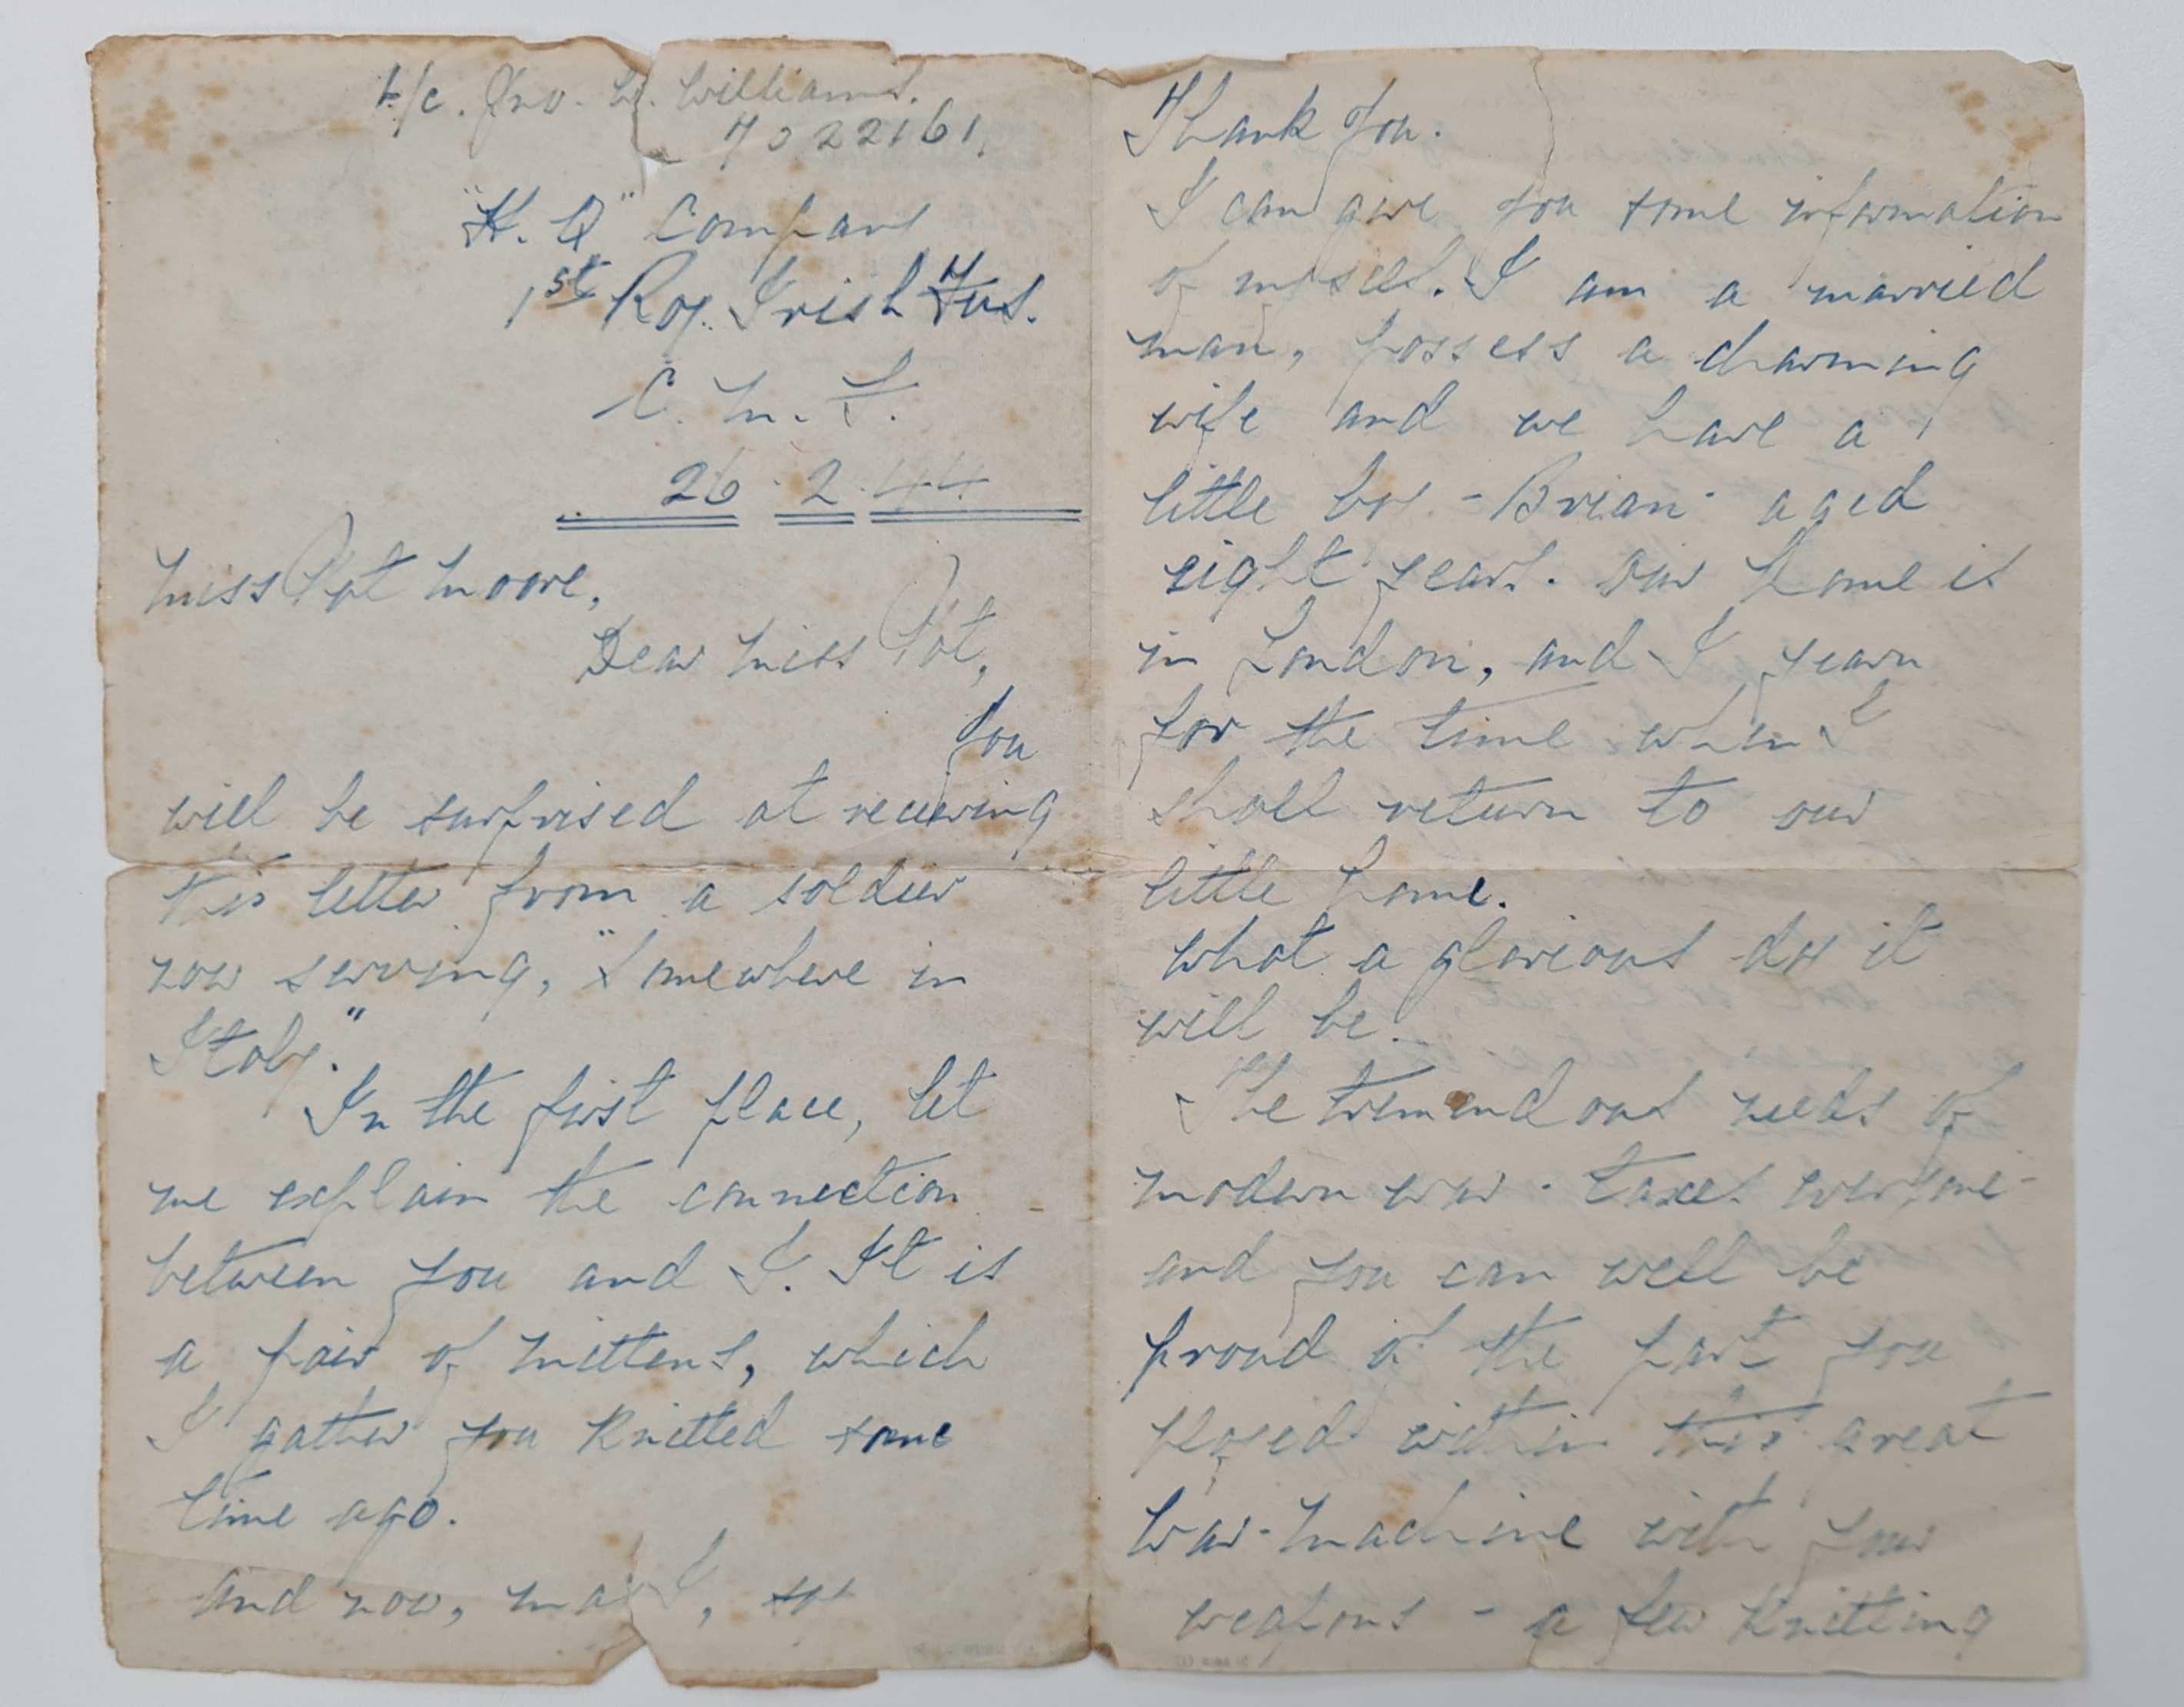 L/c. Jno. W. Williams.
7022161.
"H.Q" Company
1st Roy. Irish Fus.
C. M. F.
26. 2. 44
Miss Pat Moore,
Dear Miss Pat,
You
will be surprised at recieving
this letter from a soldier
now serving, "Somewhere in
Italy."
In the first place, let
me explain the connection
between you and I. It is
a pair of mittens, which
I gather you knitted some
time ago.
And now, may I, say
Thank You.
I can give you some information
of myself. I am a married
man, possess a charming
wife and we have a
little boy - Brian - aged
eight years. Our home is
in London, and I yearn
for the time when I
shall return to our
little home.
What a glorious day it
will be.
The tremendous needs of
modern war - taxes everyone -
and you can well be
proud of the part you
played within this great
War-Machine with your
weapons - a few knitting